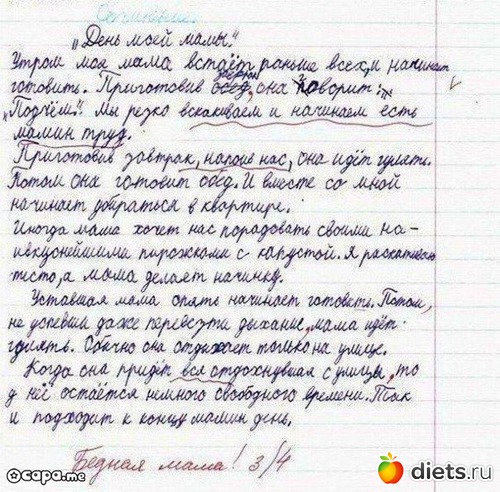 Сочинение.
„День моей мамы."
Утром моя мама встаёт раньше всех, и начинает
готовить. Приготовив обед, она говорит:
„Подъём!" Мы резко вскакиваем и начинаем есть
мамин труд.
Приготовив завтрак, напоив нас, она идёт гулять.
Потом она готовит обед. И вместе со мной
начинает убираться в квартире.
Иногда мама хочет нас порадовать своими на-
ивкуснейшими пирожками с капустой. Я раскатываю
тесто, а мама делает начинку.
Уставшая мама опять начинает готовить. Потом,
не успевши даже перевезти дыхание, мама идёт
гулять. Обычно она отдыхает только на улице.
Когда она придёт вся отдохнувшая с улицы, то
у неё остаётся немного свободного времени. Так
и подходит к концу мамин день.
Бедная мама! 3/4
@сара.me
diets.ru